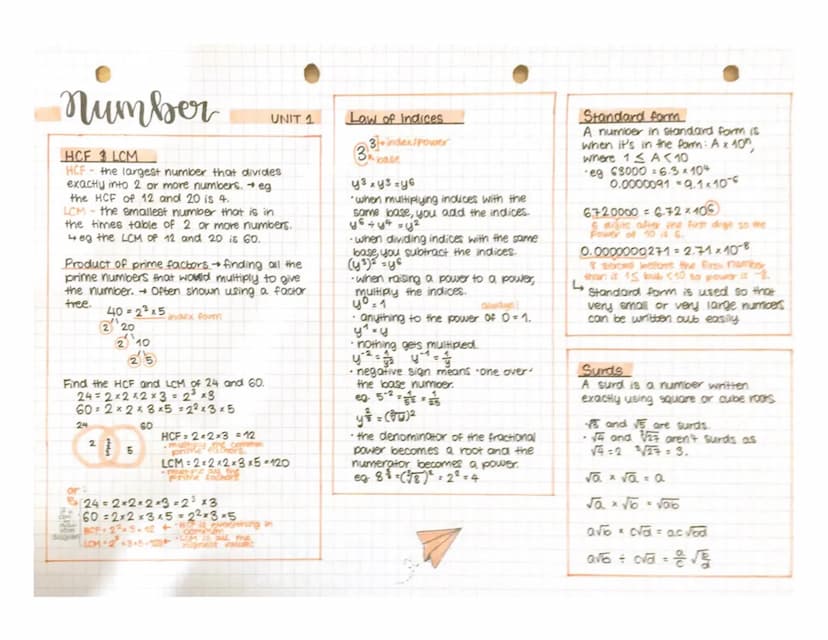 Number
UNIT 1
HCF & LCM
HCF - the largest number that divides
exactly into 2 or more numbers. → eg
the HCF of 12 and 20 is 4.
LCM - the smallest number that is in
the times table of 2 or more numbers.
↳ eg the LCM of 12 and 20 is 60.
Product of prime factors → finding all the
prime numbers that would multiply to give
the number. → Often shown using a factor
tree.
40 = 2³ × 5
index form
2 20
2 10
2 5
Find the HCF and LCM of 24 and 60.
24 = 2 × 2 × 2 × 3 = 2³ × 3
60 = 2 × 2 × 3 × 5 = 2² × 3 × 5
24 60
2 5
HCF = 2 × 2 × 3 = 12
multiply the common
prime factors.
LCM = 2 × 2 × 2 × 3 × 5 = 120
all the
prime factors
or
24 = 2 × 2 × 2 × 3 = 2³ × 3
60 = 2 × 2 × 3 × 5 = 2² × 3 × 5
HCF = 2² × 3 = 12 ← HCF is everything in
common
LCM = 2³ × 3 × 5 = 120 ← LCM is all the
highest values
Law of Indices
3³ → index/power
base
y³ × y³ = y⁶
· when multiplying indices with the
same base, you add the indices.
y⁶ ÷ y⁴ = y²
· when dividing indices with the same
base, you subtract the indices.
(y³)² = y⁶
· when raising a power to a power,
multiply the indices.
y⁰ = 1
always!
· anything to the power of 0 = 1.
y¹ = y
· nothing gets multiplied.
y⁻² = 1/y² y⁻¹ = 1/y
· negative sign means "one over"
the base number.
eg. 5⁻² = 1/5² = 1/25
· the denominator of the fractional
power becomes a root and the
numerator becomes a power.
eg. 8^⅔ = (∛8)² = 2² = 4
Standard form
A number in standard form is
when it's in the form: A × 10ⁿ,
where 1 ≤ A < 10
· eg 63000 = 6.3 × 10⁴
0.0000091 = 9.1 × 10⁻⁶
6720000 = 6.72 × 10⁶
6 digits after the first digit so the
power of 10 is 6.
0.0000000271 = 2.71 × 10⁻⁸
8 zeros before the first number
than is 1 ≤ but < 10 so power is -8.
↳ Standard form is used so that
very small or very large numbers
can be written out easily
Surds
A surd is a number written
exactly using square or cube roots.
and √5 are surds.
· √4 and ∛27 aren't surds as
√4 = 2 ∛27 = 3.
√a × √a = a
√a × √b = √ab
a√b × c√d = ac√bd
a√b ÷ c√d = a/c √b/d